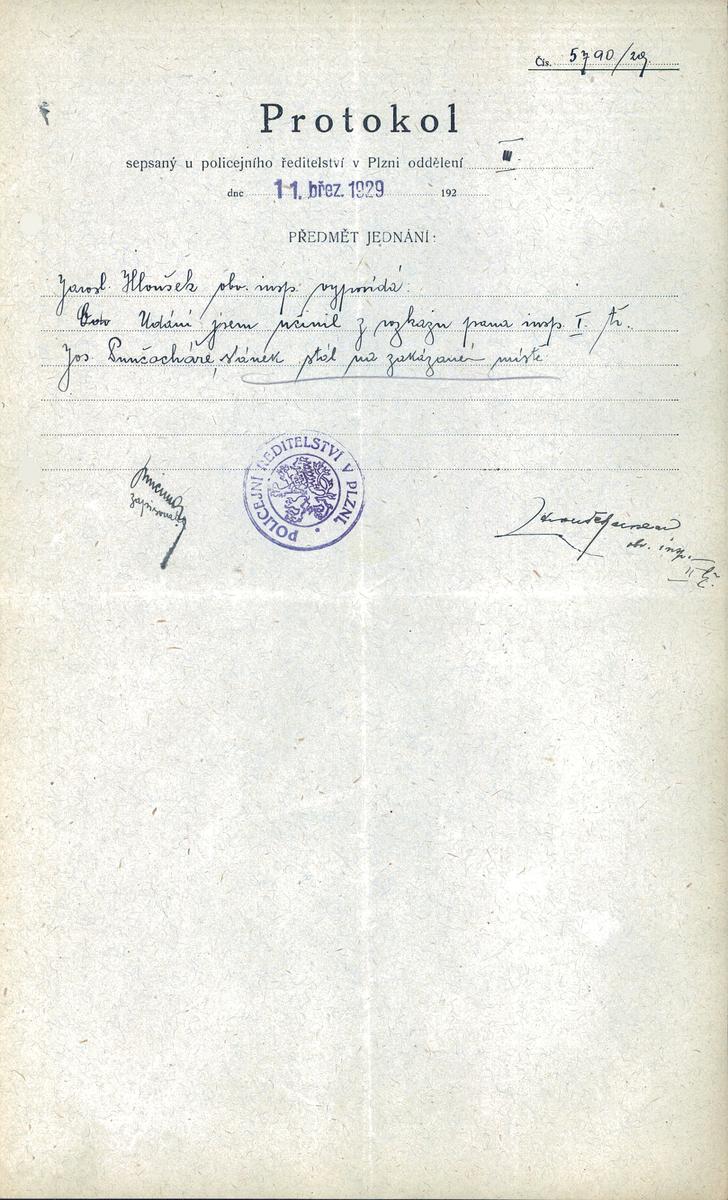 Čís. 5790/29.
Protokol
sepsaný u policejního ředitelství v Plzni oddělení III.
dne 11. břez. 1929 192
PŘEDMĚT JEDNÁNÍ:
Jarosl. Hloušek obv. insp. vypovídá:
Udání jsem učinil z rozkazu pana insp. I. tř.
Jos Punčocháře, Vánek stál na zakázaném místě
POLICEJNÍ ŘEDITELSTVÍ V PLZNI.
zapisovatel
obv. insp.
II tř